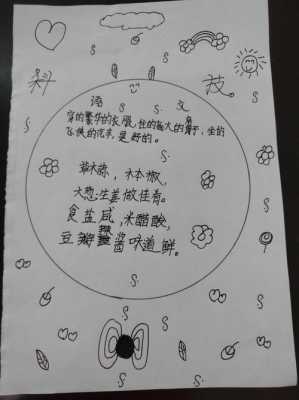 科 技
语 文
穿的繁华的衣服,住的独大的房子,坐的
飞快的汽车,是野的。
草木麻,木本椒,
大葱生姜做佳肴。
食盐咸,米醋酸,
豆瓣酱味道鲜。